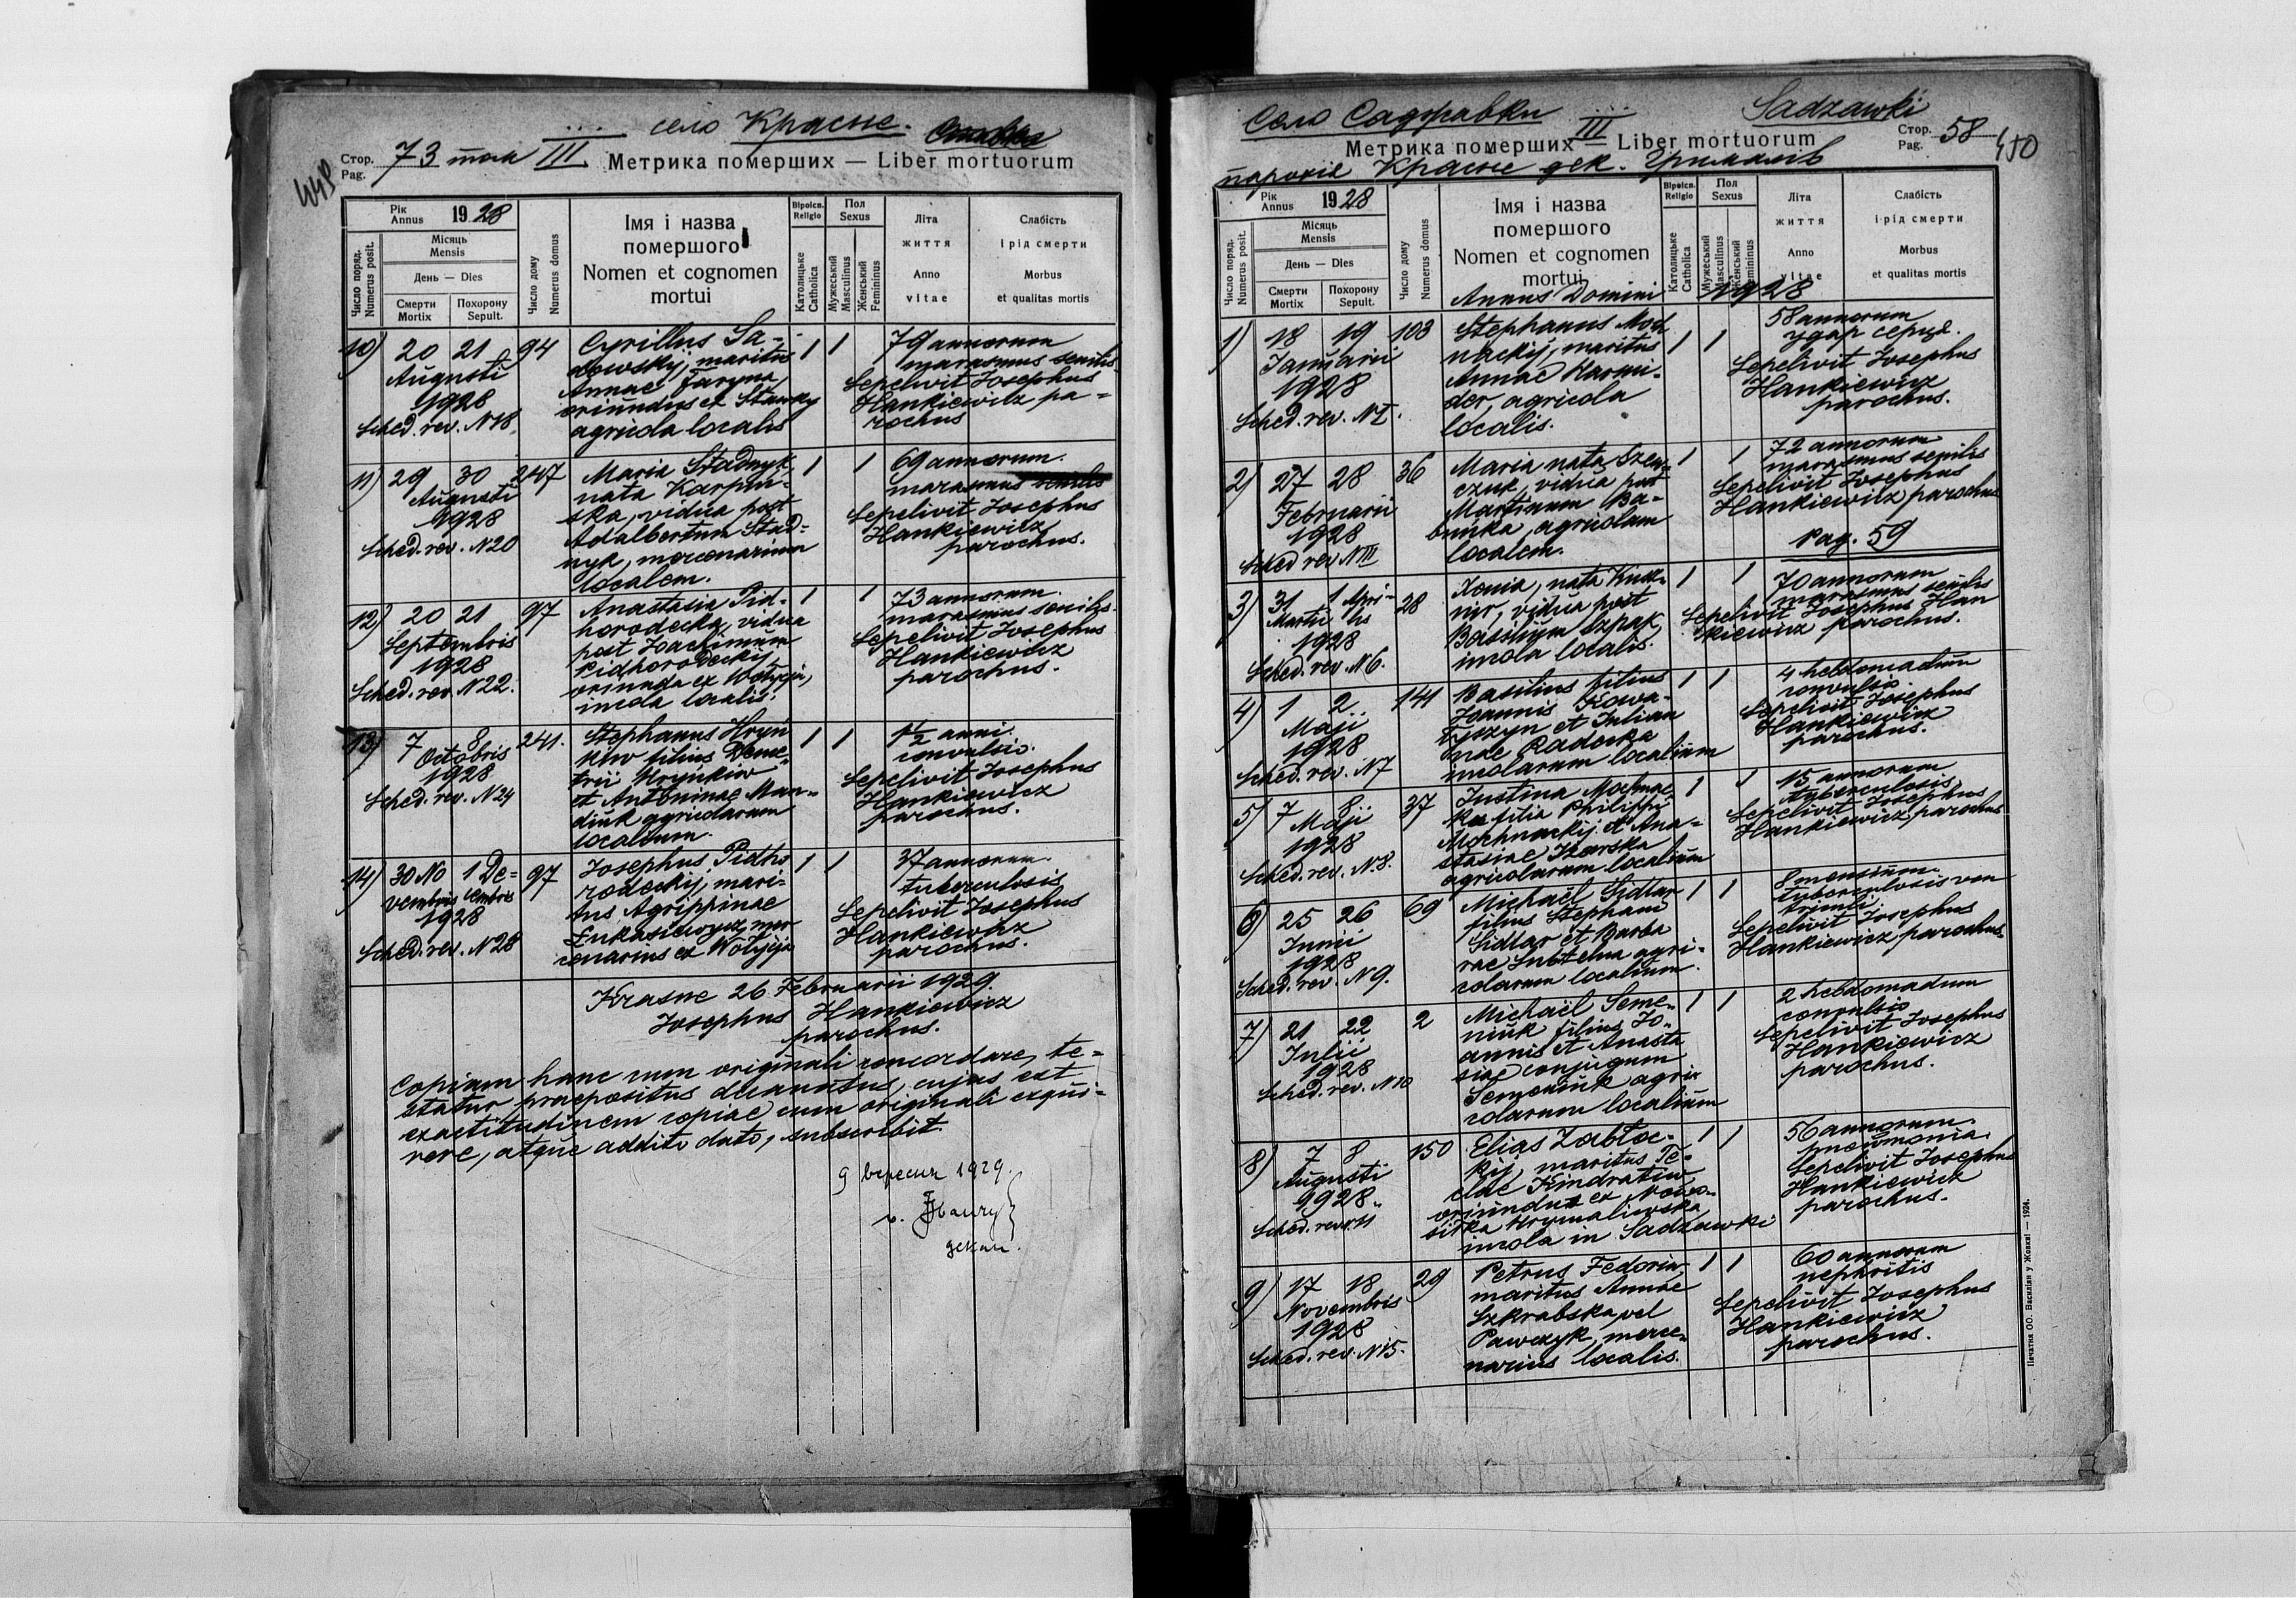 449
село Красне.
Стор. 73 том III Метрика померших — Liber mortuorum
Pag.
Рік
Annus 1928
Місяць
Mensis
День — Dies
Число поряд.
Numerus posit.
Смерти
Mortix
Похорону
Sepult.
Число дому
Numerus domus
Імя і назва
помершого
Nomen et cognomen
mortui
Віроісп.
Religio
Католицьке
Catholica
Пол
Sexus
Мужеський
Masculinus
Женський
Femininus
Літа
життя
Anno
vitae
Слабість
і рід смерти
Morbus
et qualitas mortis
10) 20 21 94 Cyrillus Sa- 1 1 79 annorum
Augusti dowskij, maritus marasmus senilis
1928 Annae Faryna, Sepelivit Josephus
oriundus ex Stawky Hankiewicz pa-
Sched. rev. N18 agricola localis rochus
11) 29 30 247 Maria Stadnyk, 1 1 69 annorum.
Augusti nata Karpin- marasmus senilis
1928 ska, vidua post Sepelivit Josephus
Sched. rev. N20 Adalbertum Stad- Hankiewicz
nyk, mercenarium parochus.
localem.
12) 20 21 97 Anastasia Pid- 1 1 73 annorum.
Septembris horodecka, vidua marasmus senilis.
1928 post Joachimum Sepelivit Josephus
Sched. rev. N22. Pidhorodeckij, Hankiewicz
oriunda ex parochus.
incola localis.
13) 7 8 241. Stephanus Hryń 1 1 1/2 anni.
Octobris kiw filius Deme- convulsio.
1928 trii Hryńkiw Sepelivit Josephus
Sched. rev. N24 et Antoninae Man- Hankiewicz
diuk agricolarum parochus.
localium.
14) 30 No 1 De= 97 Josephus Pidho 1 1 37 annorum.
vembris cembris rodeckij, mari- tuberculosis
1928 tus Agrippinae Sepelivit Josephus
Sched. rev. N28 Łukasiewycz, mer Hankiewicz
cenarius ex parochus.
Krasne 26 Februarii 1929.
Josephus Hankiewicz
parochus.
Copiam hanc cum originali concordare, te=
statur praepositus decanatus, cujus est
exactitudinem copiae cum originali exqui-
rere, atque addito dato, subscribit.
9 вересня 1929.
декан.
Село Садзавки III Sadzawki
Метрика померших — Liber mortuorum Стор. 58
Pag.
450
парохія Красне дек. Грималів
Рік
Annus 1928
Місяць
Mensis
День — Dies
Число поряд.
Numerus posit.
Смерти
Mortix
Похорону
Sepult.
Число дому
Numerus domus
Імя і назва
помершого
Nomen et cognomen
mortui
Віроісп.
Religio
Католицьке
Catholica
Пол
Sexus
Мужеський
Masculinus
Женський
Femininus
Літа
життя
Anno
vitae
Слабість
і рід смерти
Morbus
et qualitas mortis
Annus Domini 1928
1) 18 19 103 Stephanus Moch 1 1 58 annorum
Januarii nackij, maritus удар серця.
1928 Annae Sepelivit Josephus
Sched. rev. N I. agricola Hankiewicz
localis. parochus.
2) 27 28 36 Maria nata Szew- 1 1 72 annorum
Februarii czuk, vidua post marasmus senilis
1928 Martinum Ba- Sepelivit Josephus
Sched rev N III biuka, agricolam Hankiewicz parochus
localem. Pag. 59
3) 31 1 Apri- 28 Xenia, nata 1 1 70 annorum
Martii lis vidua post marasmus senilis
1928 Basilium Szpak, Sepelivit Josephus Han
Sched. rev. N6. incola localis. kiewicz parochus.
4) 1 2 141 Basilius filius 1 1 4 hebdomadum
Maji Joannis Kowa- convulsio
1928 łyszyn et Julian Sepelivit Josephus
nae Radecka Hankiewicz
Sched. rev. N7 incolarum localium parochus.
5) 7 8 37 Justina Mochnac 1 1 15 annorum
Maji ka filia Philippi tuberculosis
1928 Mochnackij et Ana- Sepelivit Josephus
Sched. rev. N.8. stasiae Hankiewicz parochus
agricolarum localium
6) 25 26 69 Michaël Gidlar 1 1 8 mensium
Junii filius Stephani tuberculosis ven
1928 Gidlar et Barba triculi.
Sched. rev. N9. rae Subtelna agri- Sepelivit Josephus
colarum localium. Hankiewicz parochus.
7) 21 22 2 Michaël Seme- 1 1 2 hebdomadum
Julii niuk filius Jo- convulsio
1928 annis et Anasta Sepelivit Josephus
Sched. rev. N10 siae conjugum Hankiewicz
Semeniuk agri parochus.
colarum localium
8) 7 8 150 Elias Zabłoc- 1 1 56 annorum.
Augusti kij, maritus Te- pneumonia.
1928 clae Kindratiw, Sepelivit Josephus
Sched. rev. N11 oriundus ex Nowo- Hankiewicz
siłka Hrymaliwska parochus.
incola in Sadzawki
9) 17 18 29 Petrus Fedoriw, 1 1 60 annorum
Novembris maritus Annae nephritis
1928 Szkrabska vel Sepelivit Josephus
Sched. rev. N15. Pawczyk, merce- Hankiewicz
narius localis. parochus.
Печатня ОО. Василіян у Жовкві — 1924.